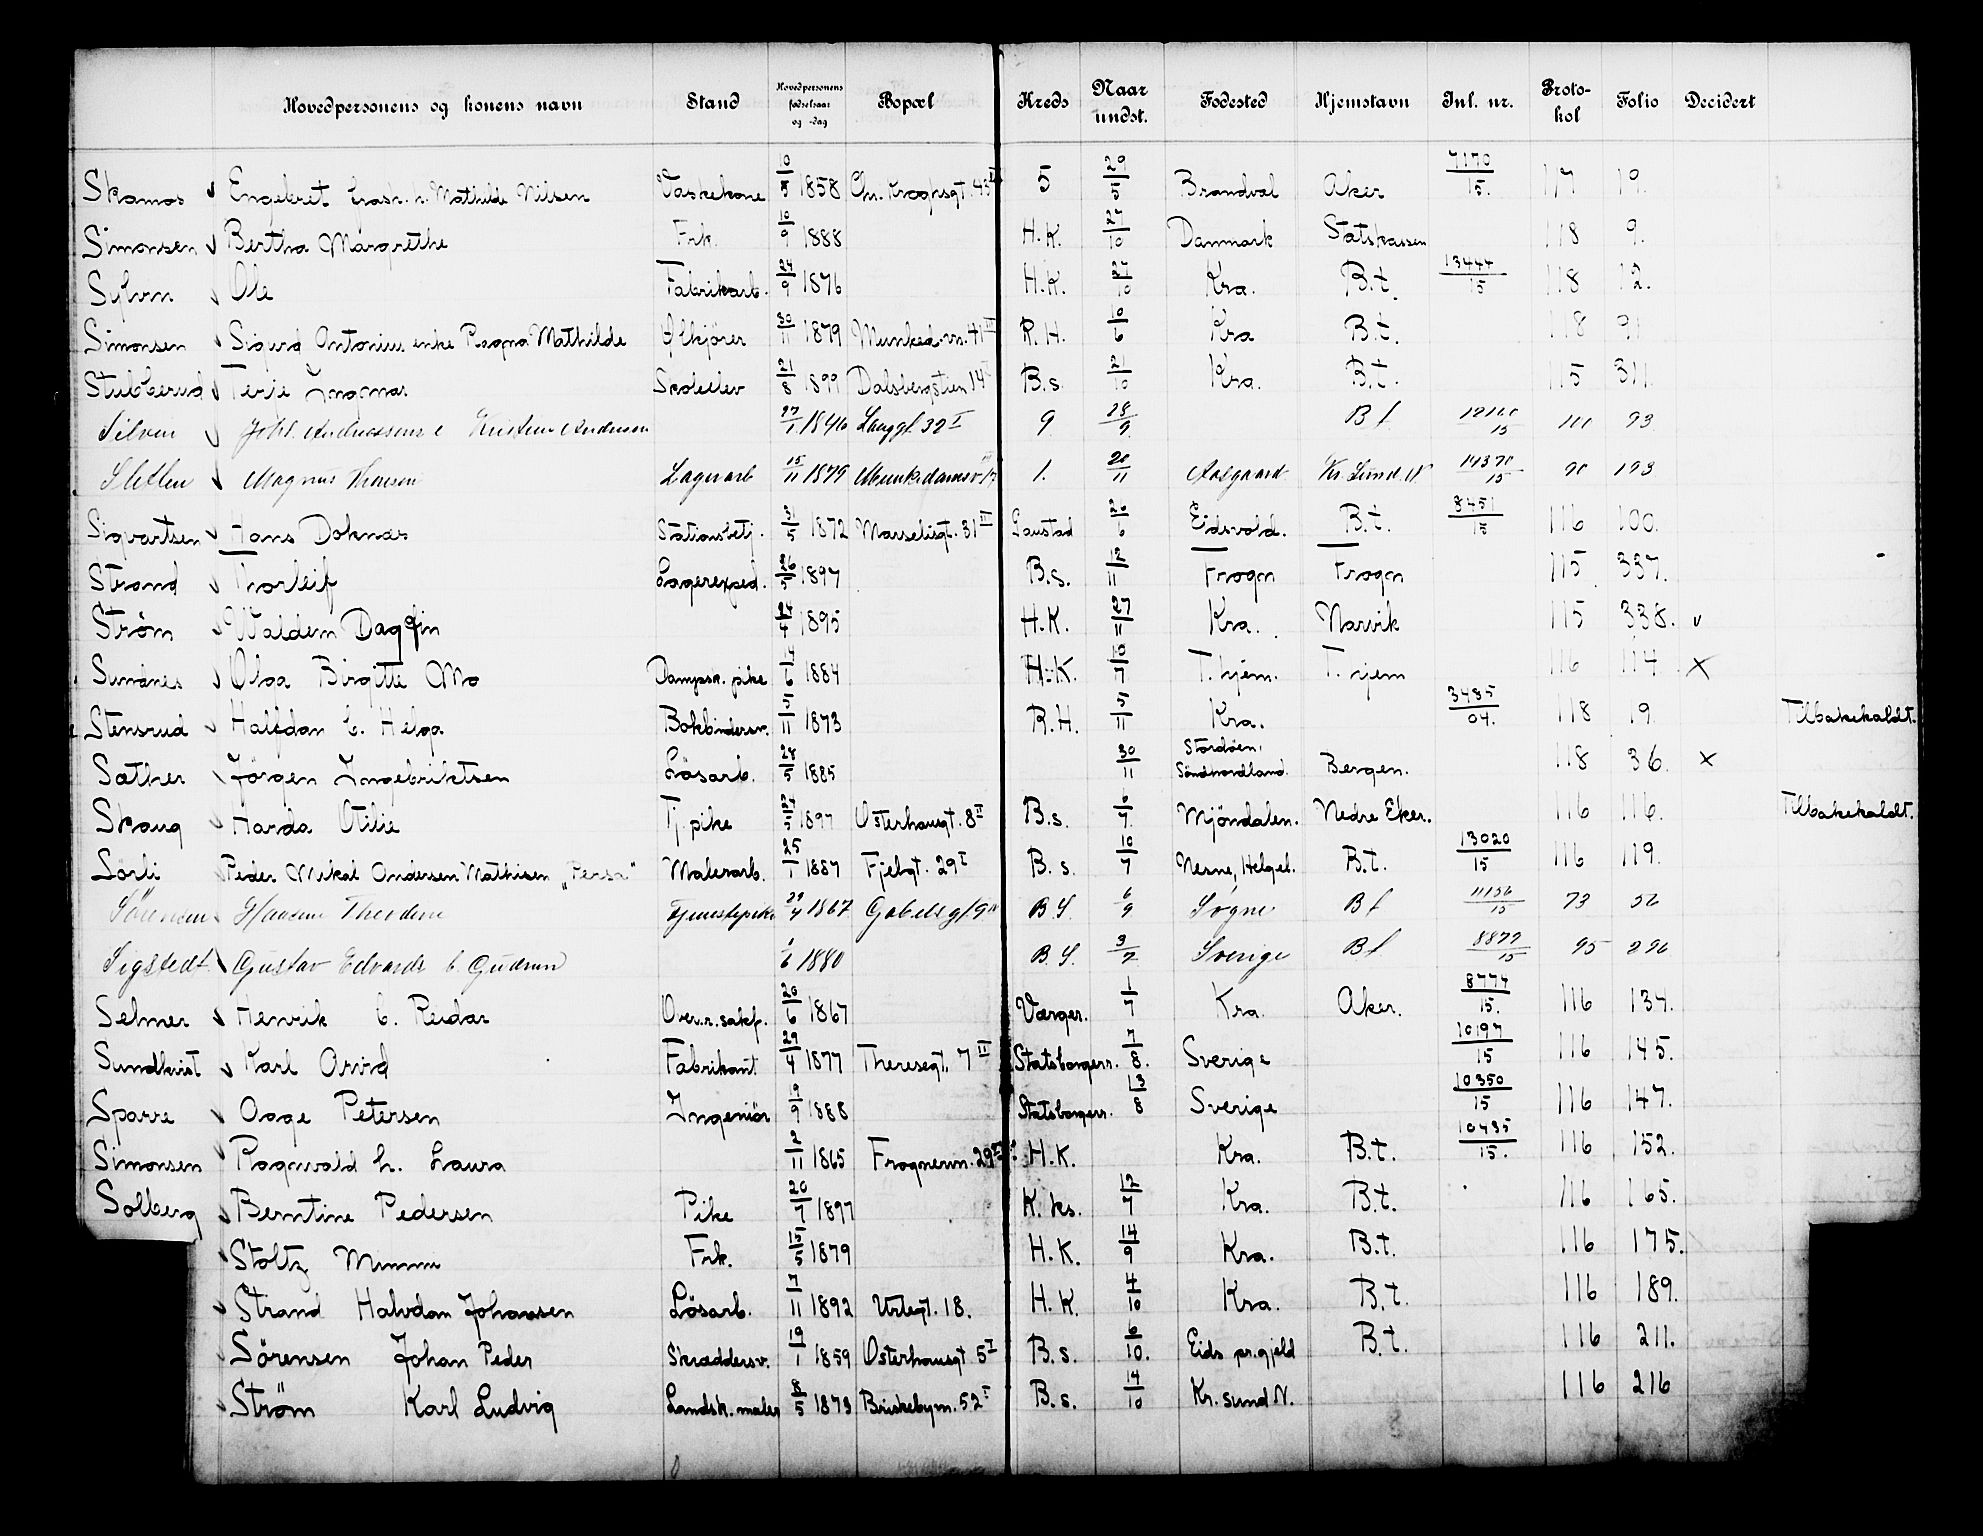 Hovedpersonens og konens navn Stand Hovedpersonens fødselsaar og -dag Bopæl Kreds Naar undst. Fødested Hjemstavn Inl. nr. Proto-kol Folio Decidert
Skamos Engebret Mathilde Nilsen Vaskekone 1858 Chr. Kroghsgt. 43 5 29/5 Brandval Aker 7170/15. 117 19.
Simonsen Bertha Margrethe Frk. 10/9 1888 H.K. 27/10 Danmark Statskassen 118 9.
Sylvn Ole Fabrikarb. 24/9 1876 H.K. 27/10 Kra. B.t. 13444/15 118 12.
Simonsen Sigurd Antonius enke Ragna Mathilde Ølkjører 30/11 1879 Munked.vn. 41 III R.H. 10/6 Kra B.t. 118 31
Stubberud Terje Ingmar Skoleelev 21/8 1899 Dalsbergstien 14 B.s. 21/10 Kra. B.t. 115 311.
Silven Joh. Andreassen e Kristine Andersen 27/1 32 I 9 28/9 B t 93
Sletten Magnus Lagerarb 15/11 1879 Munkedamsv 1. 20/11 Aasgaard Kr. Sund. N 193
Sigvartsen Hans Doknas Stationsbetj. 31/5 1872 Marselisgt. 31 II Laustad 26/6 Eidsvold. B.t. 8451/15 116 100.
Strand Thorleif Lagerexped. 26/5 1897 B.s. 12/11 Frogn Frogn 115 337.
Strøm Waldem Dagfin 24/4 1895 H.K. 27/11 Kra. Narvik 115 338. v
Sundnes Olga Birgitte Mo Dampsk. pike 14/6 1884 H.K. 10/7 T. hjem. T. hjem 116 114 X
Stensrud Halfdan C. Helga Bokbindersv. 5/11 1873 R.H. 5/11 Kra. 3485/04. 118 19. Tilbakekaldt.
Sæther Jørgen Ingebriktsen Løsarb. 28/5 1885 30/11 Stordøen, Søndhordland. Bergen. 118 36. X
Skaug Harda Otilie Tj. pike 24/5 1897 Osterhausgt. 8 II B.s. 6/7 Mjøndalen. Nedre Eker. 116 116. Tilbakekaldt.
Sørli Peder Mikal Andersen Mathisen „Persa“ Malerarb. 25/1 1887 Fjeldgt. 29 I B.s. 10/7 Nesne, Helgel. B.t. 13020/15 116 119.
Sørensen Hansine Theodine Tjenestepike 29/4 1867 Gabels gt. 9 B.S. 6/9 Søgne B t 11156/15 73 52
Sigstedt Gustav Edvards C. Gudrun 1/6 1880 B.S. 3/7 Sverige B t 8879/15 95 296
Selmer Henrik C. Reidar Over.r.sakf. 20/6 1867 Værger. 1/7 Kra. Aker. 8774/15. 116 134.
Sundkvist Karl Arvid Fabrikant 29/4 1877 Theresegt. 7 II Statsborgerr. 7/8. Sverige 10197/15 116 145.
Sparre Aage Petersen Ingeniør 19/9 1888 Statsborgerr. 13/8 Sverige 10350/15 116 147.
Simonsen Ragnvald h. Laura 2/11 1865 Frognervn. 29 H.K. Kra. B.t. 10435/15. 116 152.
Solberg Berntine Pedersen Pike 20/7 1897 K. ks. 12/7 Kra. B.t. 116 165.
Stoltz Mimmi Frk. 15/5 1879 H.K. 14/9 Kra. B.t. 116 175.
Strand Halvdan Johansen Løsarb. 7/11 1892 Urtegt. 18. H.K. 4/10 Kra. B.t. 116 189.
Sørensen Johan Peder Skræddersv. 19/1 1859 Osterhausgt 5 I B.s. 6/10. Eids pr.gjeld B.t. 116 211.
Strøm Karl Ludvig Landsk.maler 8/5 1873 Briskebyvn. 52 I B.s. 14/10 Kr. sund N. 116 216